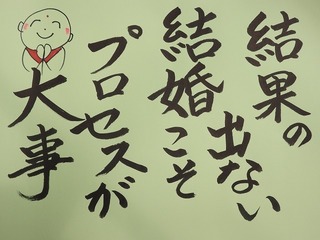 結果の
出ない
結婚こそ
プロセスが
大事